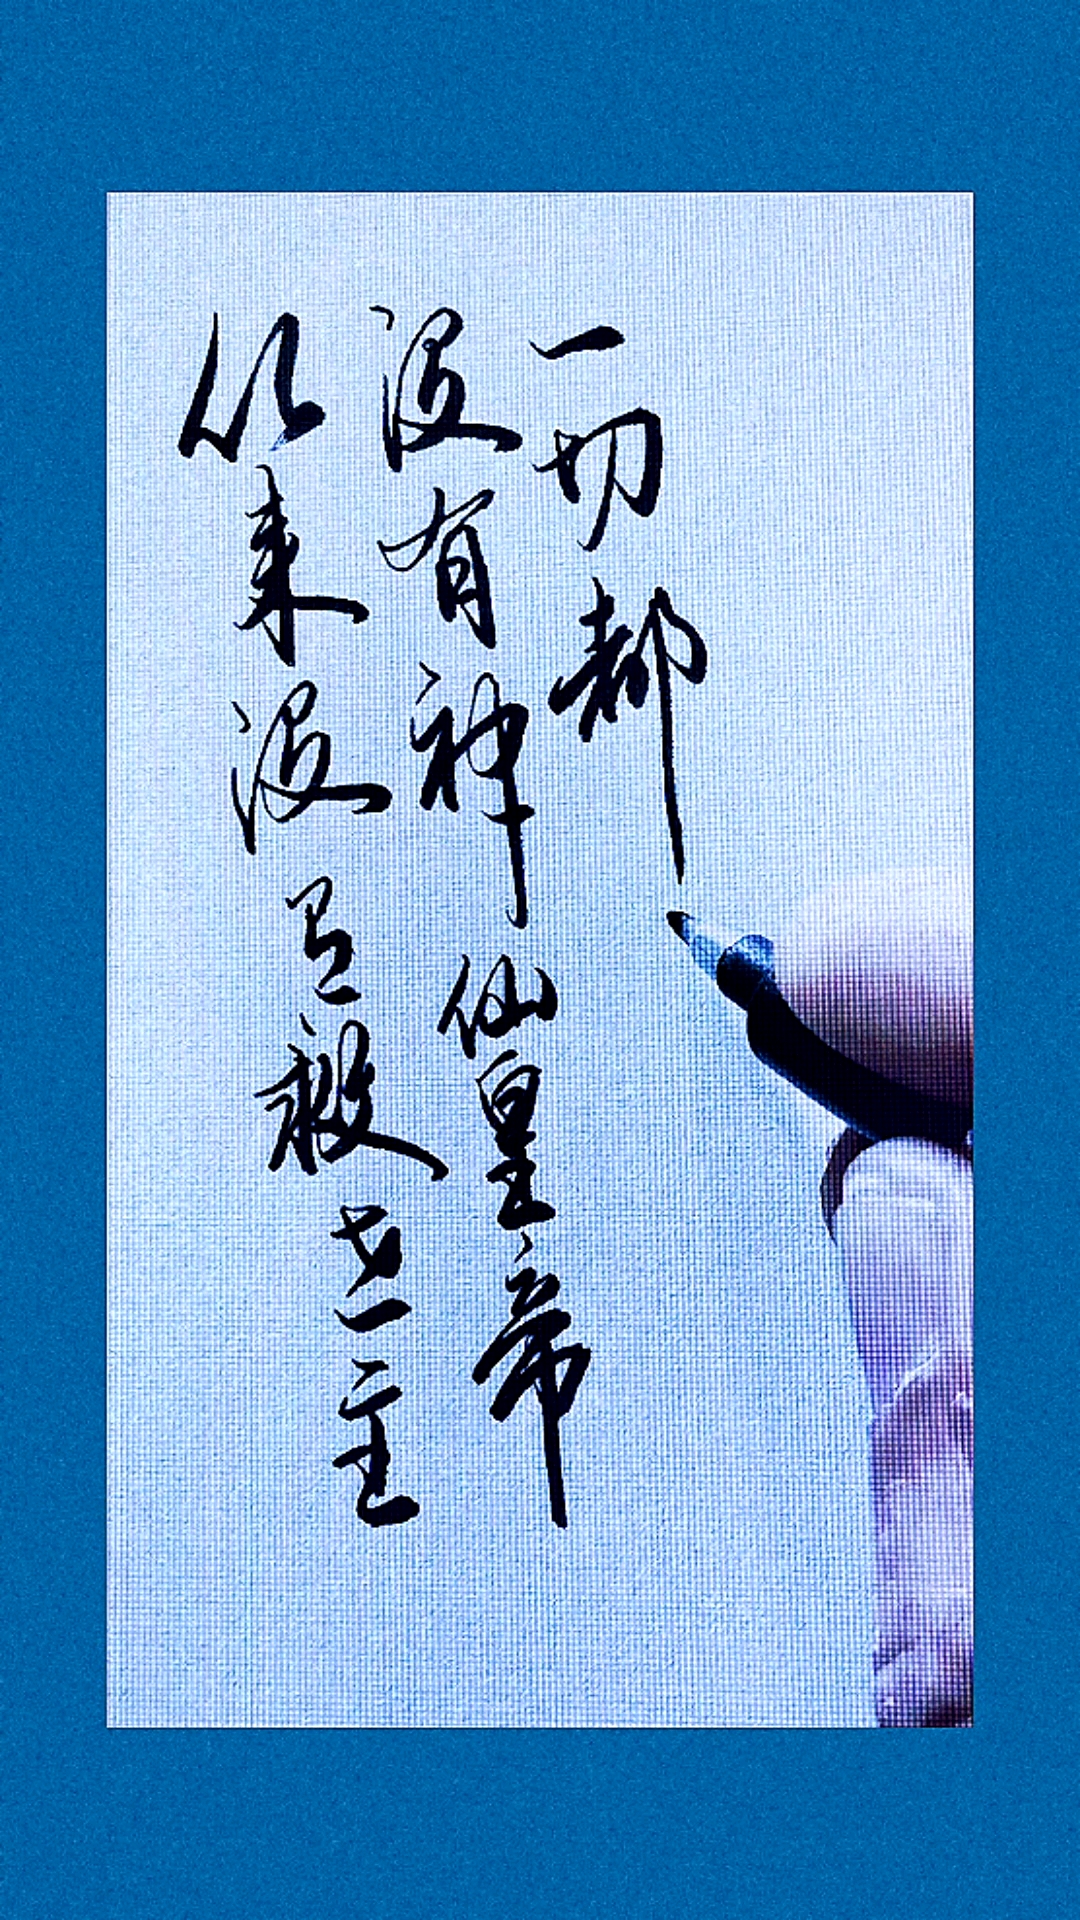 从来没有救世主
没有神仙皇帝
一切都